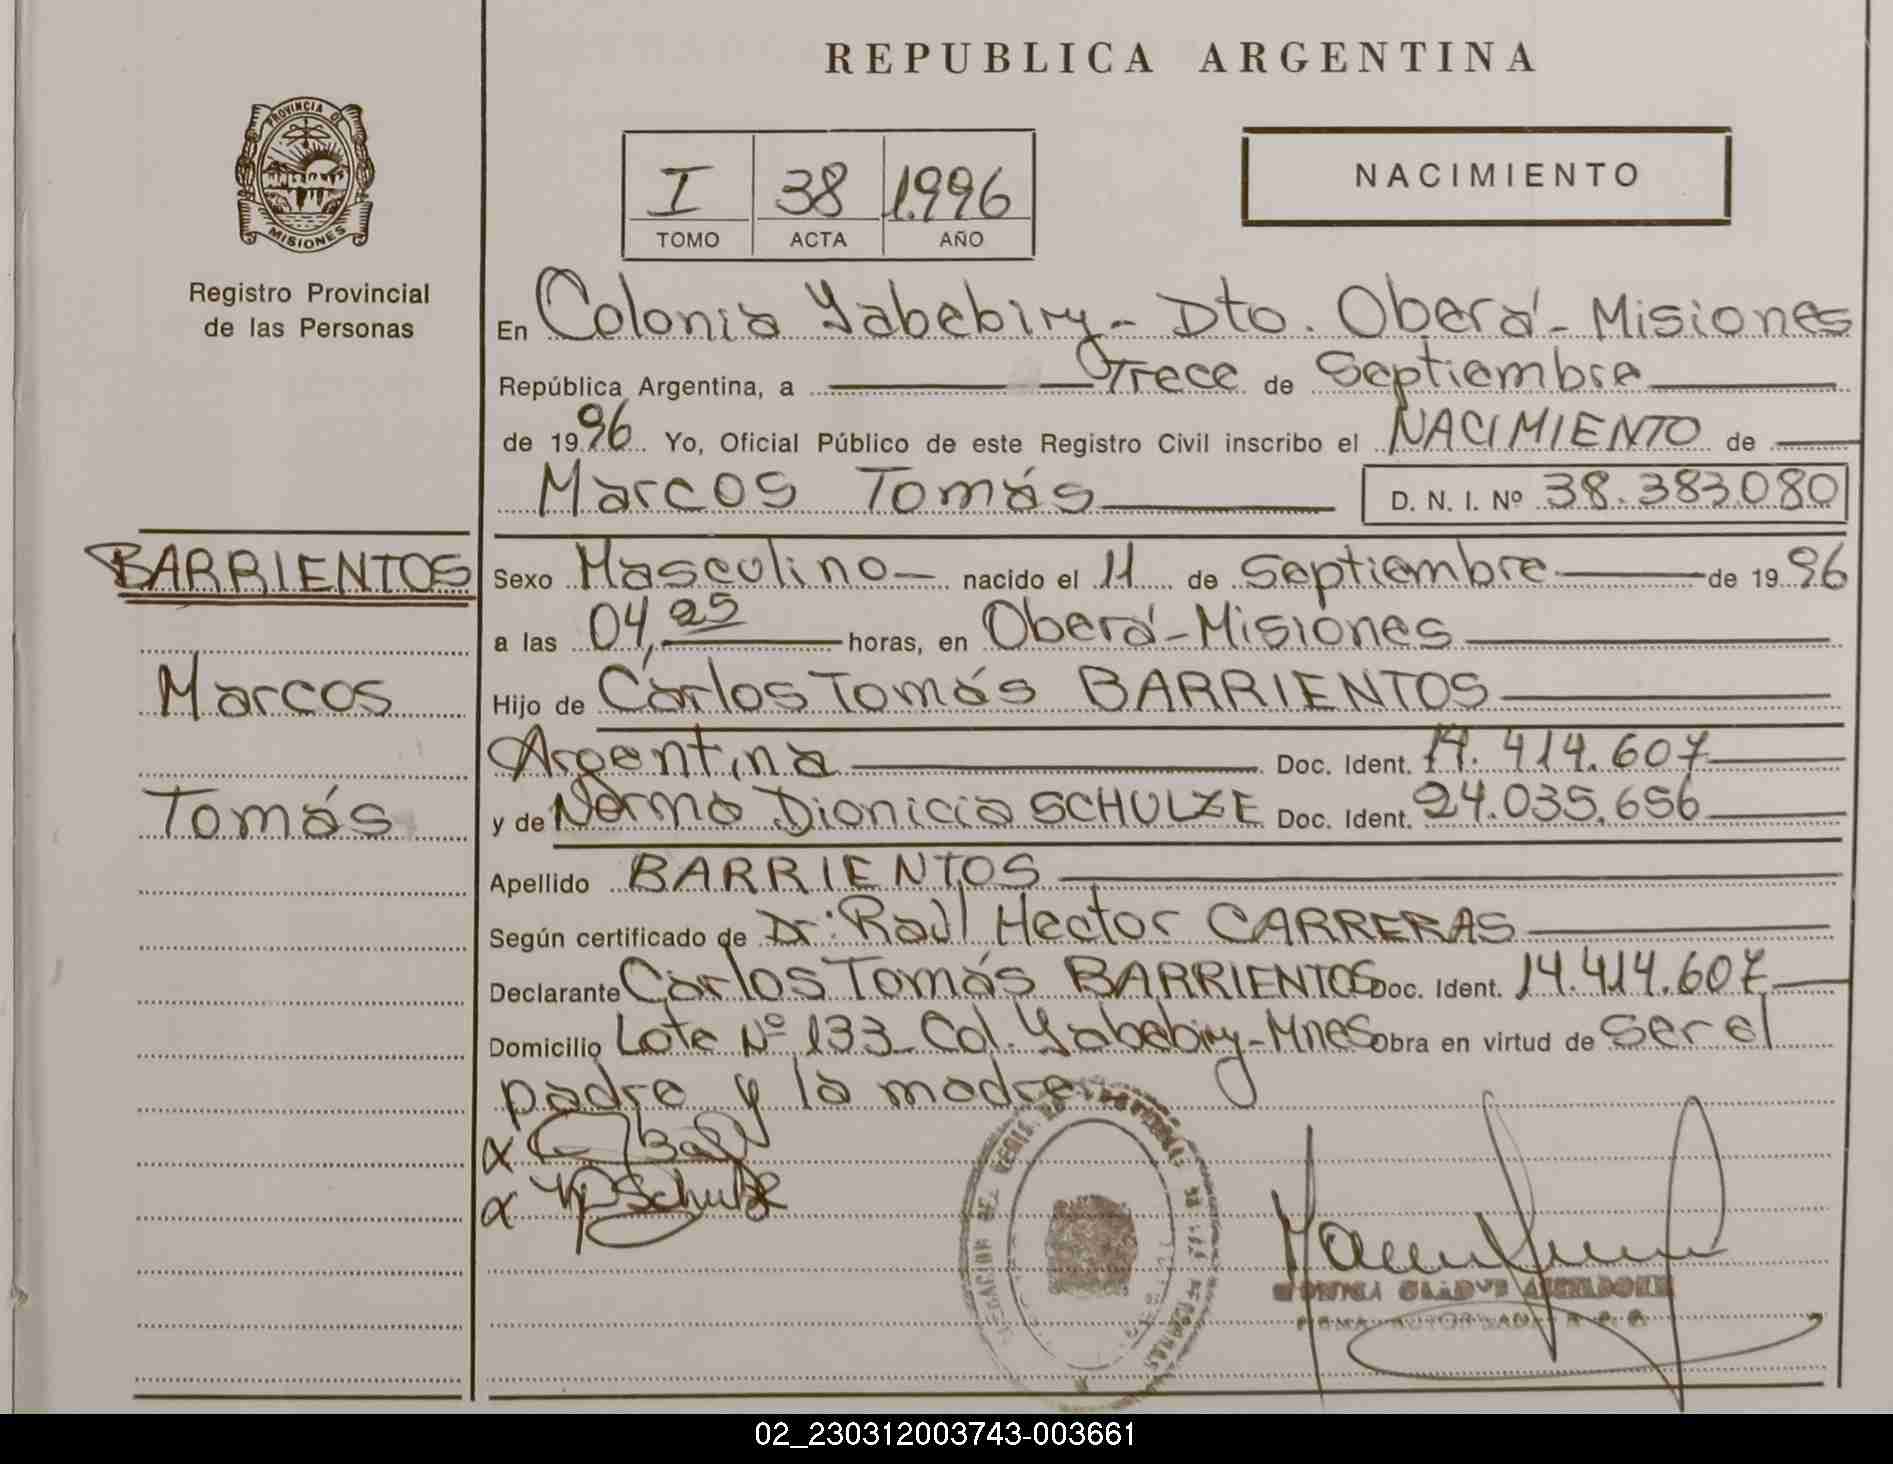 REPUBLICA ARGENTINA
PROVINCIA DE
MISIONES
Registro Provincial
de las Personas
I 38 1.996
TOMO ACTA AÑO
NACIMIENTO
En Colonia Yabebiry - Dto. Oberá - Misiones
República Argentina, a Trece de Septiembre
de 1996 Yo, Oficial Público de este Registro Civil inscribo el NACIMIENTO de
Marcos Tomás D. N. I. Nº 38.383.080
BARRIENTOS
Marcos
Tomás
Sexo Masculino nacido el 11 de Septiembre de 1996
a las 04,25 horas, en Oberá - Misiones
Hijo de Carlos Tomás BARRIENTOS
Argentina Doc. Ident. 14.414.607
y de Norma Dionicia SCHULZE Doc. Ident. 24.035.656
Apellido BARRIENTOS
Según certificado de Dr: Raúl Hector CARRERAS
Declarante Carlos Tomás BARRIENTOS Doc. Ident. 14.414.607
Domicilio Lote Nº 133 - Col. Yabebiry - Mnes Obra en virtud de ser el
padre y la madre
02_230312003743-003661